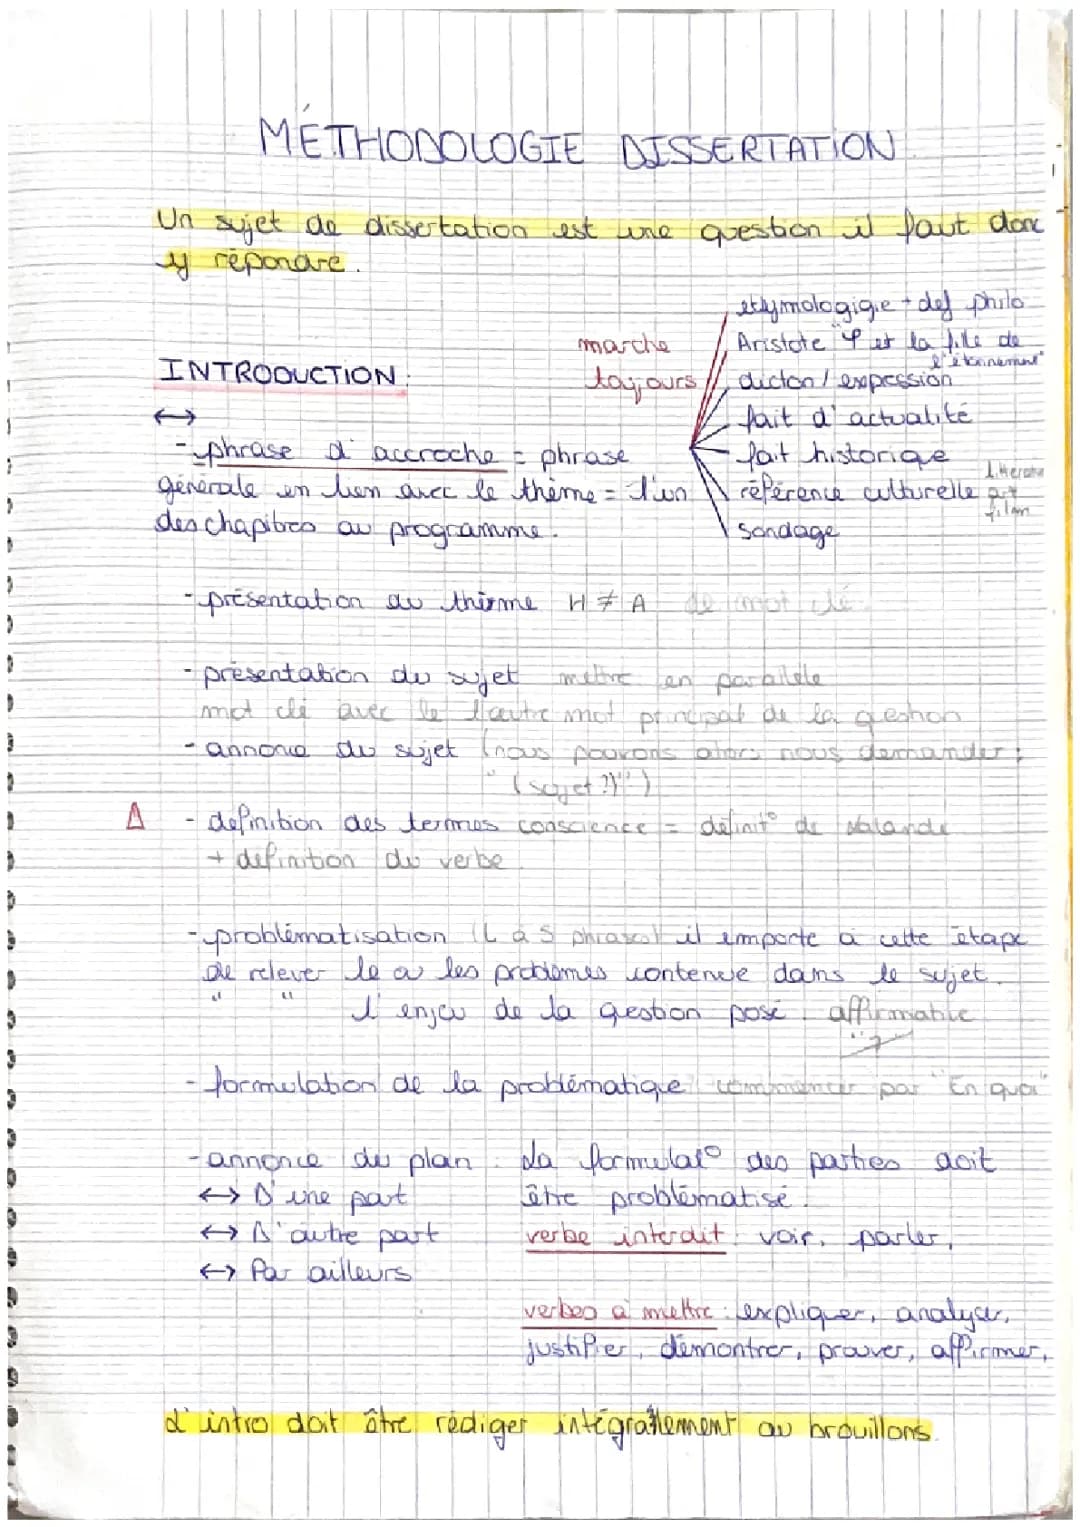 MÉTHODOLOGIE DISSERTATION
Un sujet de dissertation est une question il faut donc
y répondre.
INTRODUCTION :
marche
toujours
etymologigie + def philo
Aristote "φ est la fille de
l'étonnement"
dicton / expression
fait d'actualité
fait historique
référence culturelle
art
film
sondage
↔
- phrase d'accroche = phrase
générale en lien avec le thème = l'un
des chapitres au programme.
- présentation du thème H ≠ A de mot clé
- présentation du sujet mettre en parallèle
mot clé avec le l'autre mot principal de la question
- annonce du sujet (nous pouvons alors nous demander :
" (sujet ?)")
Δ - définition des termes conscience = définit° de Lalande
+ définition du verbe
- problématisation (4 à 5 phrases) il emporte à cette étape
de relever le ou les problèmes contenue dans le sujet.
" " l'enjeu de la question posé. affirmative
"?"
- formulation de la problématique commencer par "En quoi"
- annonce du plan. La formulat° des parties doit
↔ D'une part être problématisé.
↔ D'autre part verbe interdit : voir, parler,
↔ Par ailleurs
verbes à mettre : expliquer, analyser,
justifier, démontrer, prouver, affirmer,
L'intro doit être rédiger intégrallement au brouillons.